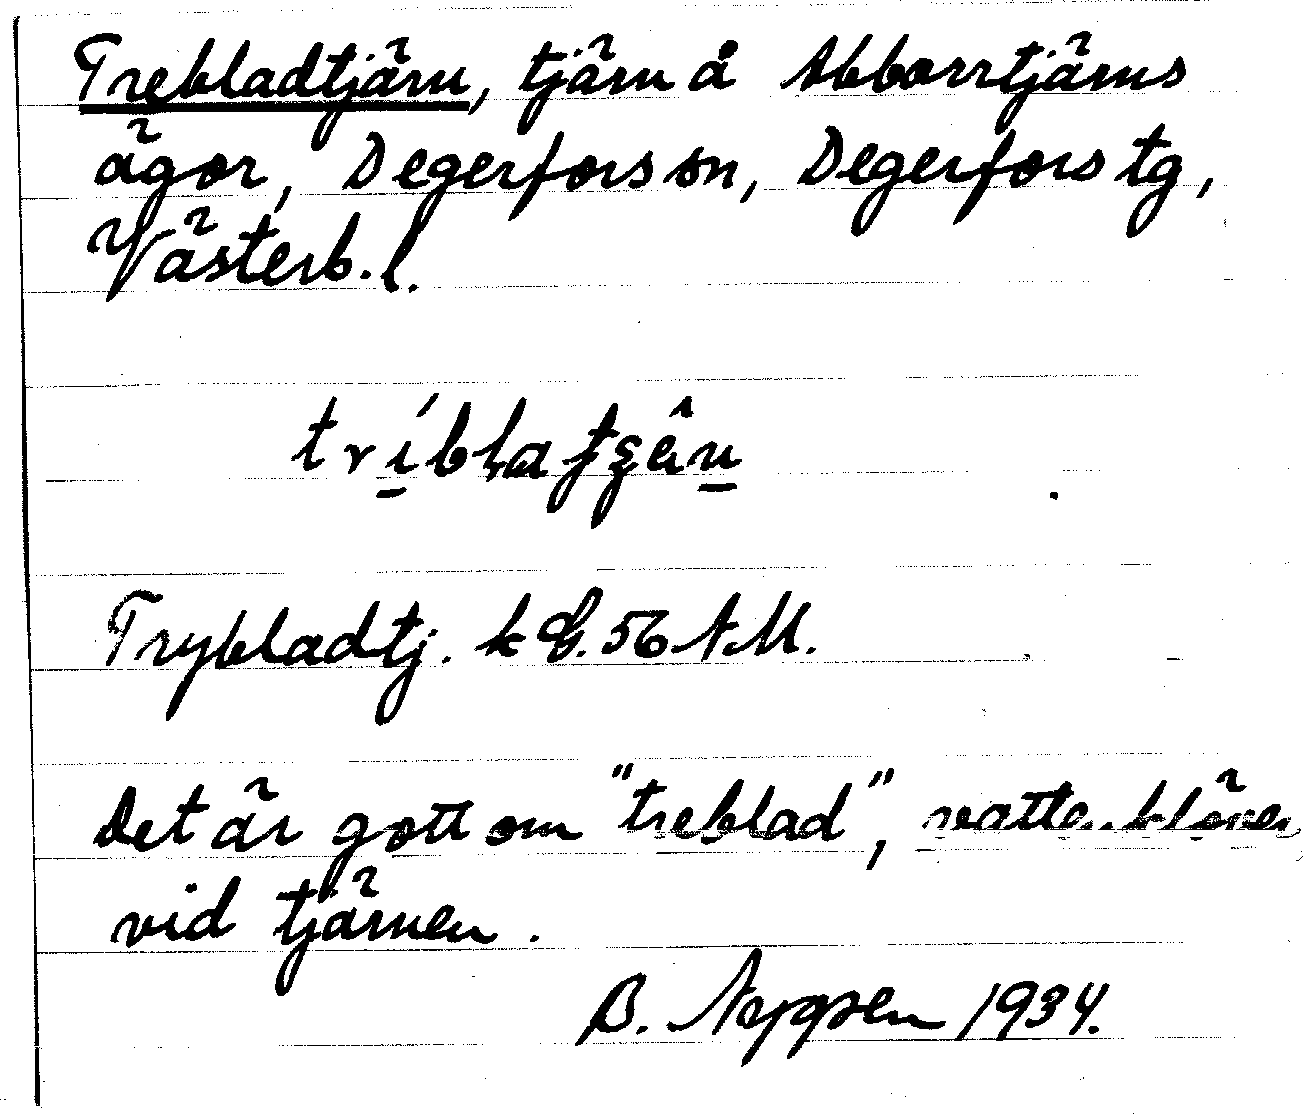 Trebladtjärn, tjärn å Abborrtjärns
ägor, Degerfors sn, Degerfors tg,
Västerb. l.
Trybladtj. k G. 56 AM.
Det är gott om "treblad", vattenklöver,
vid tjärnen.
B. 1934.